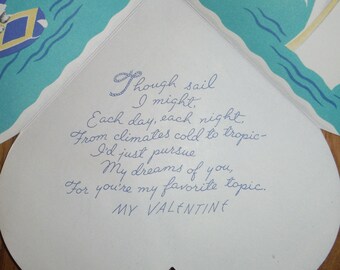 Though sail
I might,
Each day, each night
From climates cold to tropic-
I'd just pursue
My dreams of you,
For you're my favorite topic.
MY VALENTINE